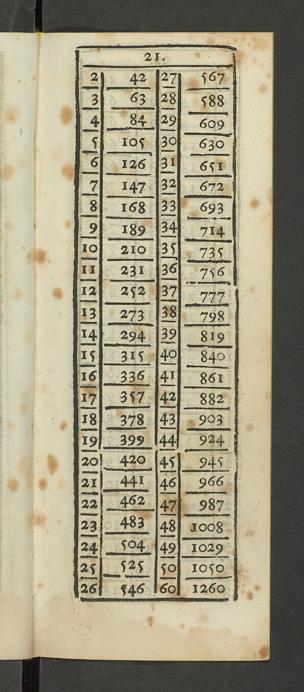 21.
2 42 27 567
3 63 28 588
4 84 29 609
5 105 30 630
6 126 31 651
7 147 32 672
8 168 33 693
9 189 34 714
10 210 35 735
11 231 36 756
12 252 37 777
13 273 38 798
14 294 39 819
15 315 40 840
16 336 41 861
17 357 42 882
18 378 43 903
19 399 44 924
20 420 45 945
21 441 46 966
22 462 47 987
23 483 48 1008
24 504 49 1029
25 525 50 1050
26 546 60 1260